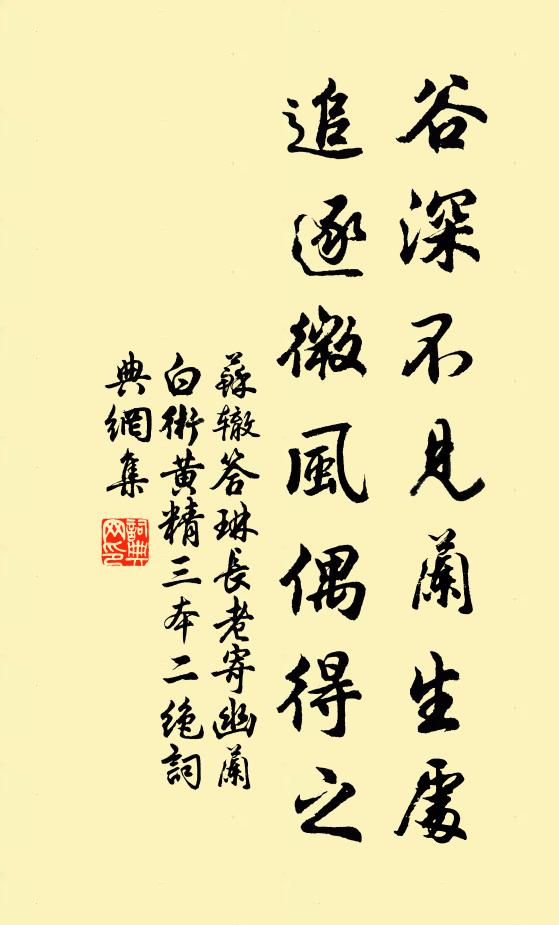 谷深不見蘭生處
追逐微風偶得之
蘇轍答琳長老寄幽蘭
白術黄精三本二絶詞
典網集
詞典网印